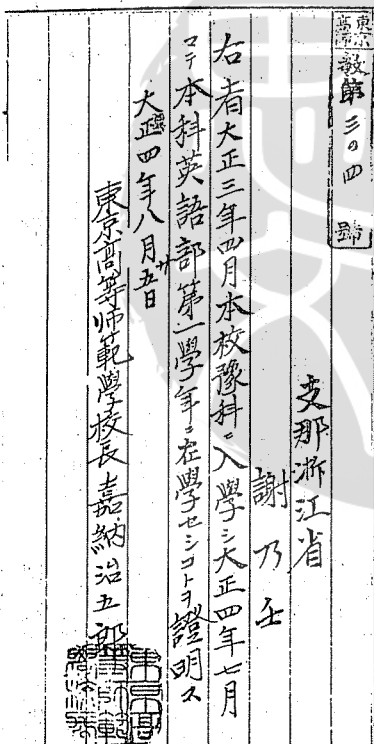 東京高師 教第三の四號
支那浙江省
謝乃壬
右者大正三年四月本校豫科ニ入學シ大正四年七月
マテ本科英語部第一學年ニ在學セシコトヲ證明ス
大正四年八月廿五日
東京高等师範學校長嘉納治五郎